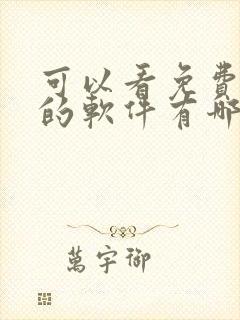 可以看免費
的軟件有哪
萬宇御